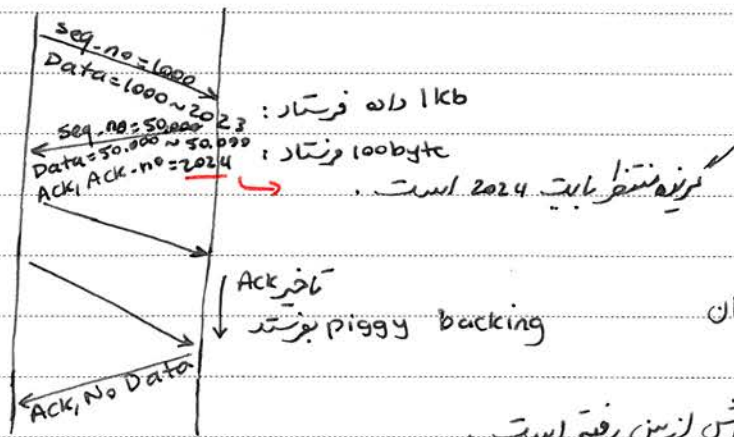 seq-no=1000
Data=1000~2023 : 1kb داده فرستاد
seq-no=50.000
Data=50.000~50.099 : 100byte فرستاد
Ack, Ack-no=2024
گیرنده منتظر بایت 2024 است .
تاخیر Ack
piggy backing بفرستد
ان
Ack, No Data
از بین رفته است .